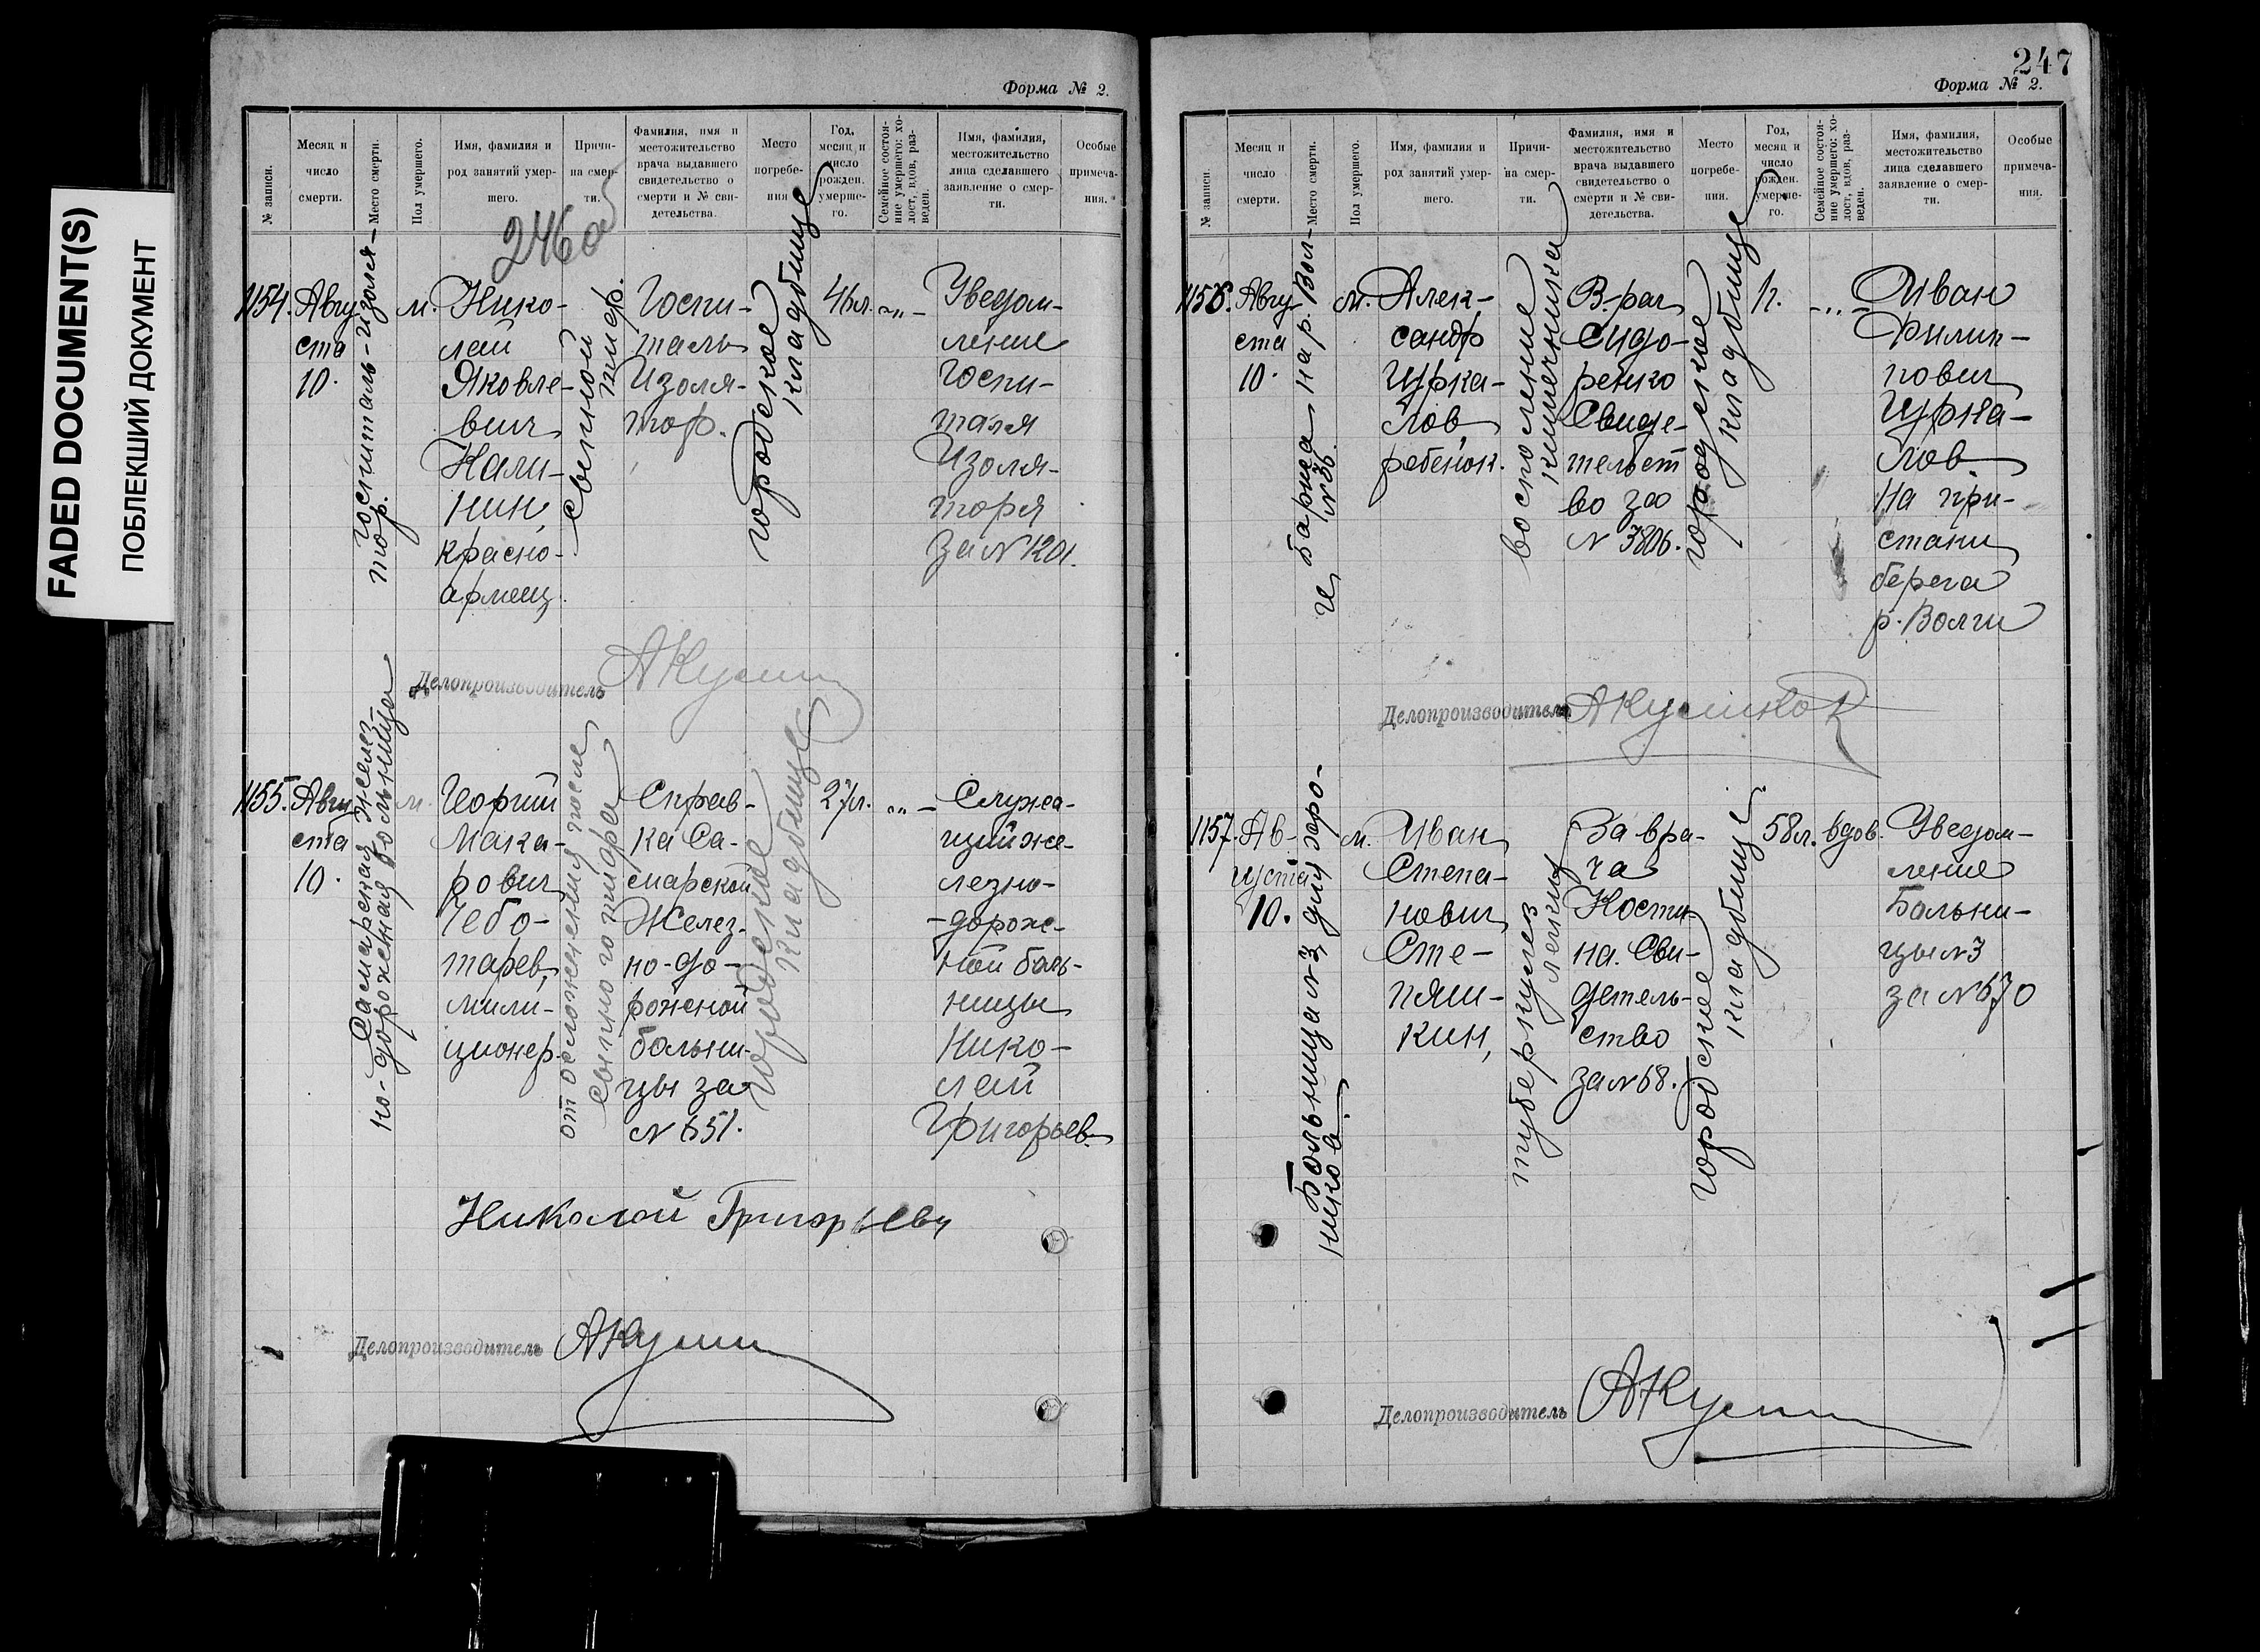 FADED DOCUMENT(S)
ПОБЛЕКШИЙ ДОКУМЕНТ
Форма № 2.
№ записи.
Месяц и
число
смерти.
Место смерти.
Пол умершего.
Имя, фамилия и
род занятий умер-
шего.
Причи-
на смер-
ти.
Фамилия, имя и
местожительство
врача выдавшего
свидетельство о
смерти и № сви-
детельства.
Место
погребе-
ния
Год,
месяц и
число
рожден.
умерше-
го.
Семейное состоя-
ние умершего: хо-
лост, вдов, раз-
веден.
Имя, фамилия,
местожительство
лица сделавшего
заявление о смер-
ти.
Особые
примеча-
ния.
246об
1154.
Авгу-
ста
10.
Госпиталь-Изоля-
тор.
м.
Нико-
лай
Яковле-
вич
Кали-
нин,
красно-
армеец.
сыпной
тиф.
Госпи-
таль
Изоля-
тор.
городское
кладбище
46л.
-"-
Уведом-
ление
Госпи-
таля
Изоля-
тора
за № 1201.
Делопроизводитель
1155.
Авгу
ста
10.
Самарская Желез
но-дорожная больница
м.
Георгий
Мака-
рович
Чебо-
тарев,
мили-
ционер.
от осложнения после
сыпного тифа
Справ-
ка Са-
марской
Желез-
но-до-
рожной
больни-
цы за
№ 651.
городское
кладбище
27л.
-"-
Служа-
щий же-
лезно-
-дорож-
ной боль-
ницы
Нико-
лай
Григорьев.
Николай Григорьев
Делопроизводитель
247
Форма № 2.
№ записи.
Месяц и
число
смерти.
Место смерти.
Пол умершего.
Имя, фамилия и
род занятий умер-
шего.
Причи-
на смер-
ти.
Фамилия, имя и
местожительство
врача выдавшего
свидетельство о
смерти и № сви-
детельства.
Место
погребе-
ния.
Год,
месяц и
число
рожден.
умерше-
го.
Семейное состоя-
ние умершего: хо-
лост, вдов, раз-
веден.
Имя, фамилия,
местожительство
лица сделавшего
заявление о смер-
ти.
Особые
примеча-
ния.
1156.
Авгу-
ста
10.
Баржа на р. Вол-
ге № 36.
м.
Алек-
сандр
Цурка-
лов,
ребёнок.
воспаление
кишечника
В-рач
Сидо-
ренко
Свиде-
тельст
во за
№ 3806.
городское
кладбище
1г.
-"-
Иван
Филип-
пович
Цурка-
лов.
На при-
стани
берега
р. Волги
Делопроизводитель
1157.
Ав-
густа
10.
Больница № 3 для хро-
ников.
м.
Иван
Степа-
нович
Сте-
пяш-
кин,
туберкулез
легких
За вра-
ча
Кости-
на. Сви-
детель-
ство
за № 68.
городское
кладбище
58л.
вдов.
Уведом-
ление
Больни-
цы № 3
за № 670
Делопроизводитель